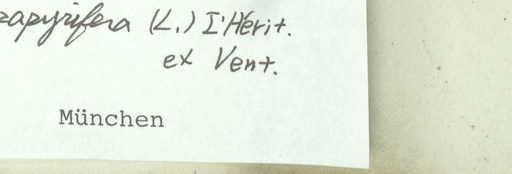 papyrifera (L.) L'Hérit.
ex Vent.
München